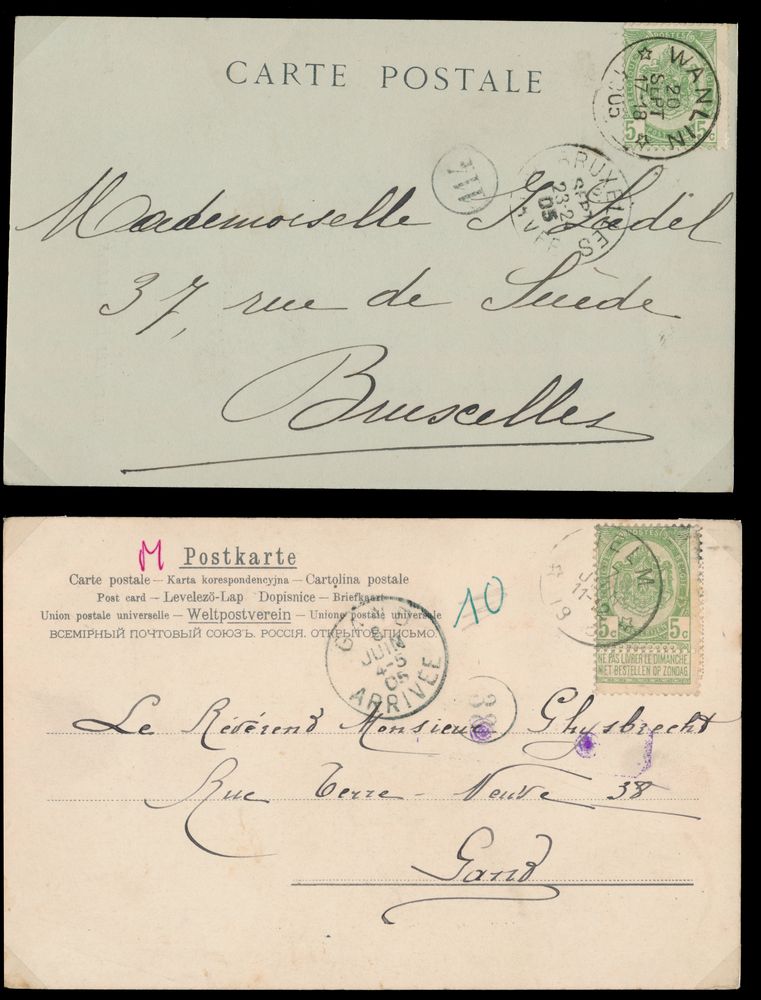 CARTE POSTALE
POSTES
5c 5c
☆ WANLIN ☆
20
SEPT
17-18
1905
BRUXELLES
SEPT
23-24
05
Mademoiselle
37, rue de Suède
Bruxelles
M Postkarte
Carte postale — Karta korespondencyjna — Cartolina postale
Post card — Levelező-Lap Dopisnice — Briefkaart
Union postale universelle — Weltpostverein — Unione postale universale
ВСЕМІРНЫЙ ПОЧТОВЫЙ СОЮЗЪ. РОССІЯ. ОТКРЫТОЕ ПИСЬМО.
10
5c 5c
NE PAS LIVRER LE DIMANCHE
NIET BESTELLEN OP ZONDAG
GAND
8
JUIN
4-5
05
ARRIVÉE
38
Le Révérend Monsieur Ghysbrecht
Rue Terre-Neuve 38
Gand